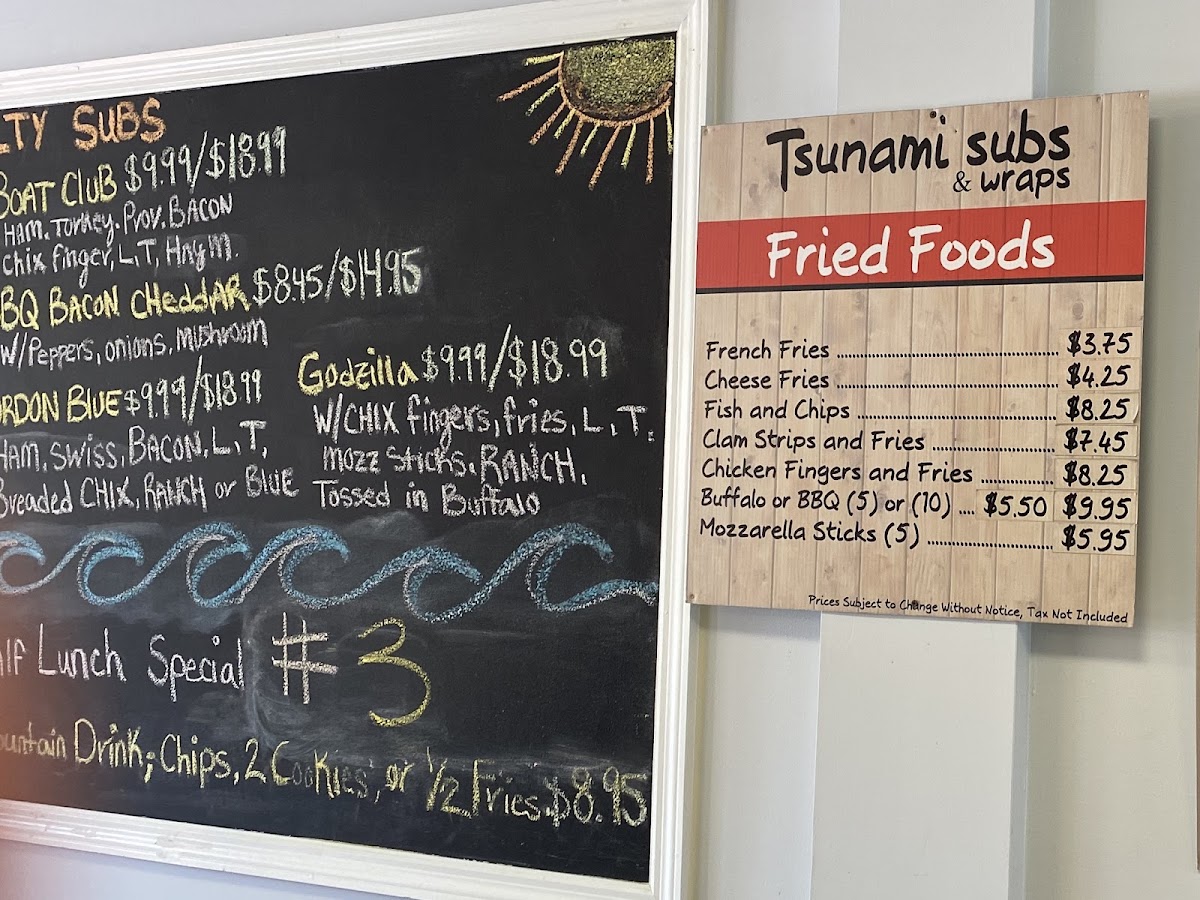 LTY SUBS
BOAT CLUB $9.99/$18.99
HAM, Turkey, Prov, BACON
chix finger, L,T, Hnym.
BQ BACON CHeddAR $8.45/$14.95
W/Peppers, onions, mushroom
ORDON BLUE $9.99/$18.99
HAM, swiss, BACON, L,T,
Breaded CHIX, RANCH or BLUE
Godzilla $9.99/$18.99
W/CHIX fingers, fries, L,T,
mozz sticks, RANCH,
Tossed in Buffalo
alf Lunch Special # 3
ountain Drink; Chips, 2 Cookies, or 1/2 Fries $8.95
Tsunami subs
& wraps
Fried Foods
French Fries ........ $3.75
Cheese Fries ........ $4.25
Fish and Chips ........ $8.25
Clam Strips and Fries ........ $7.45
Chicken Fingers and Fries ........ $8.25
Buffalo or BBQ (5) or (10) .... $5.50 $9.95
Mozzarella Sticks (5) ........ $5.95
Prices Subject to Change Without Notice, Tax Not Included